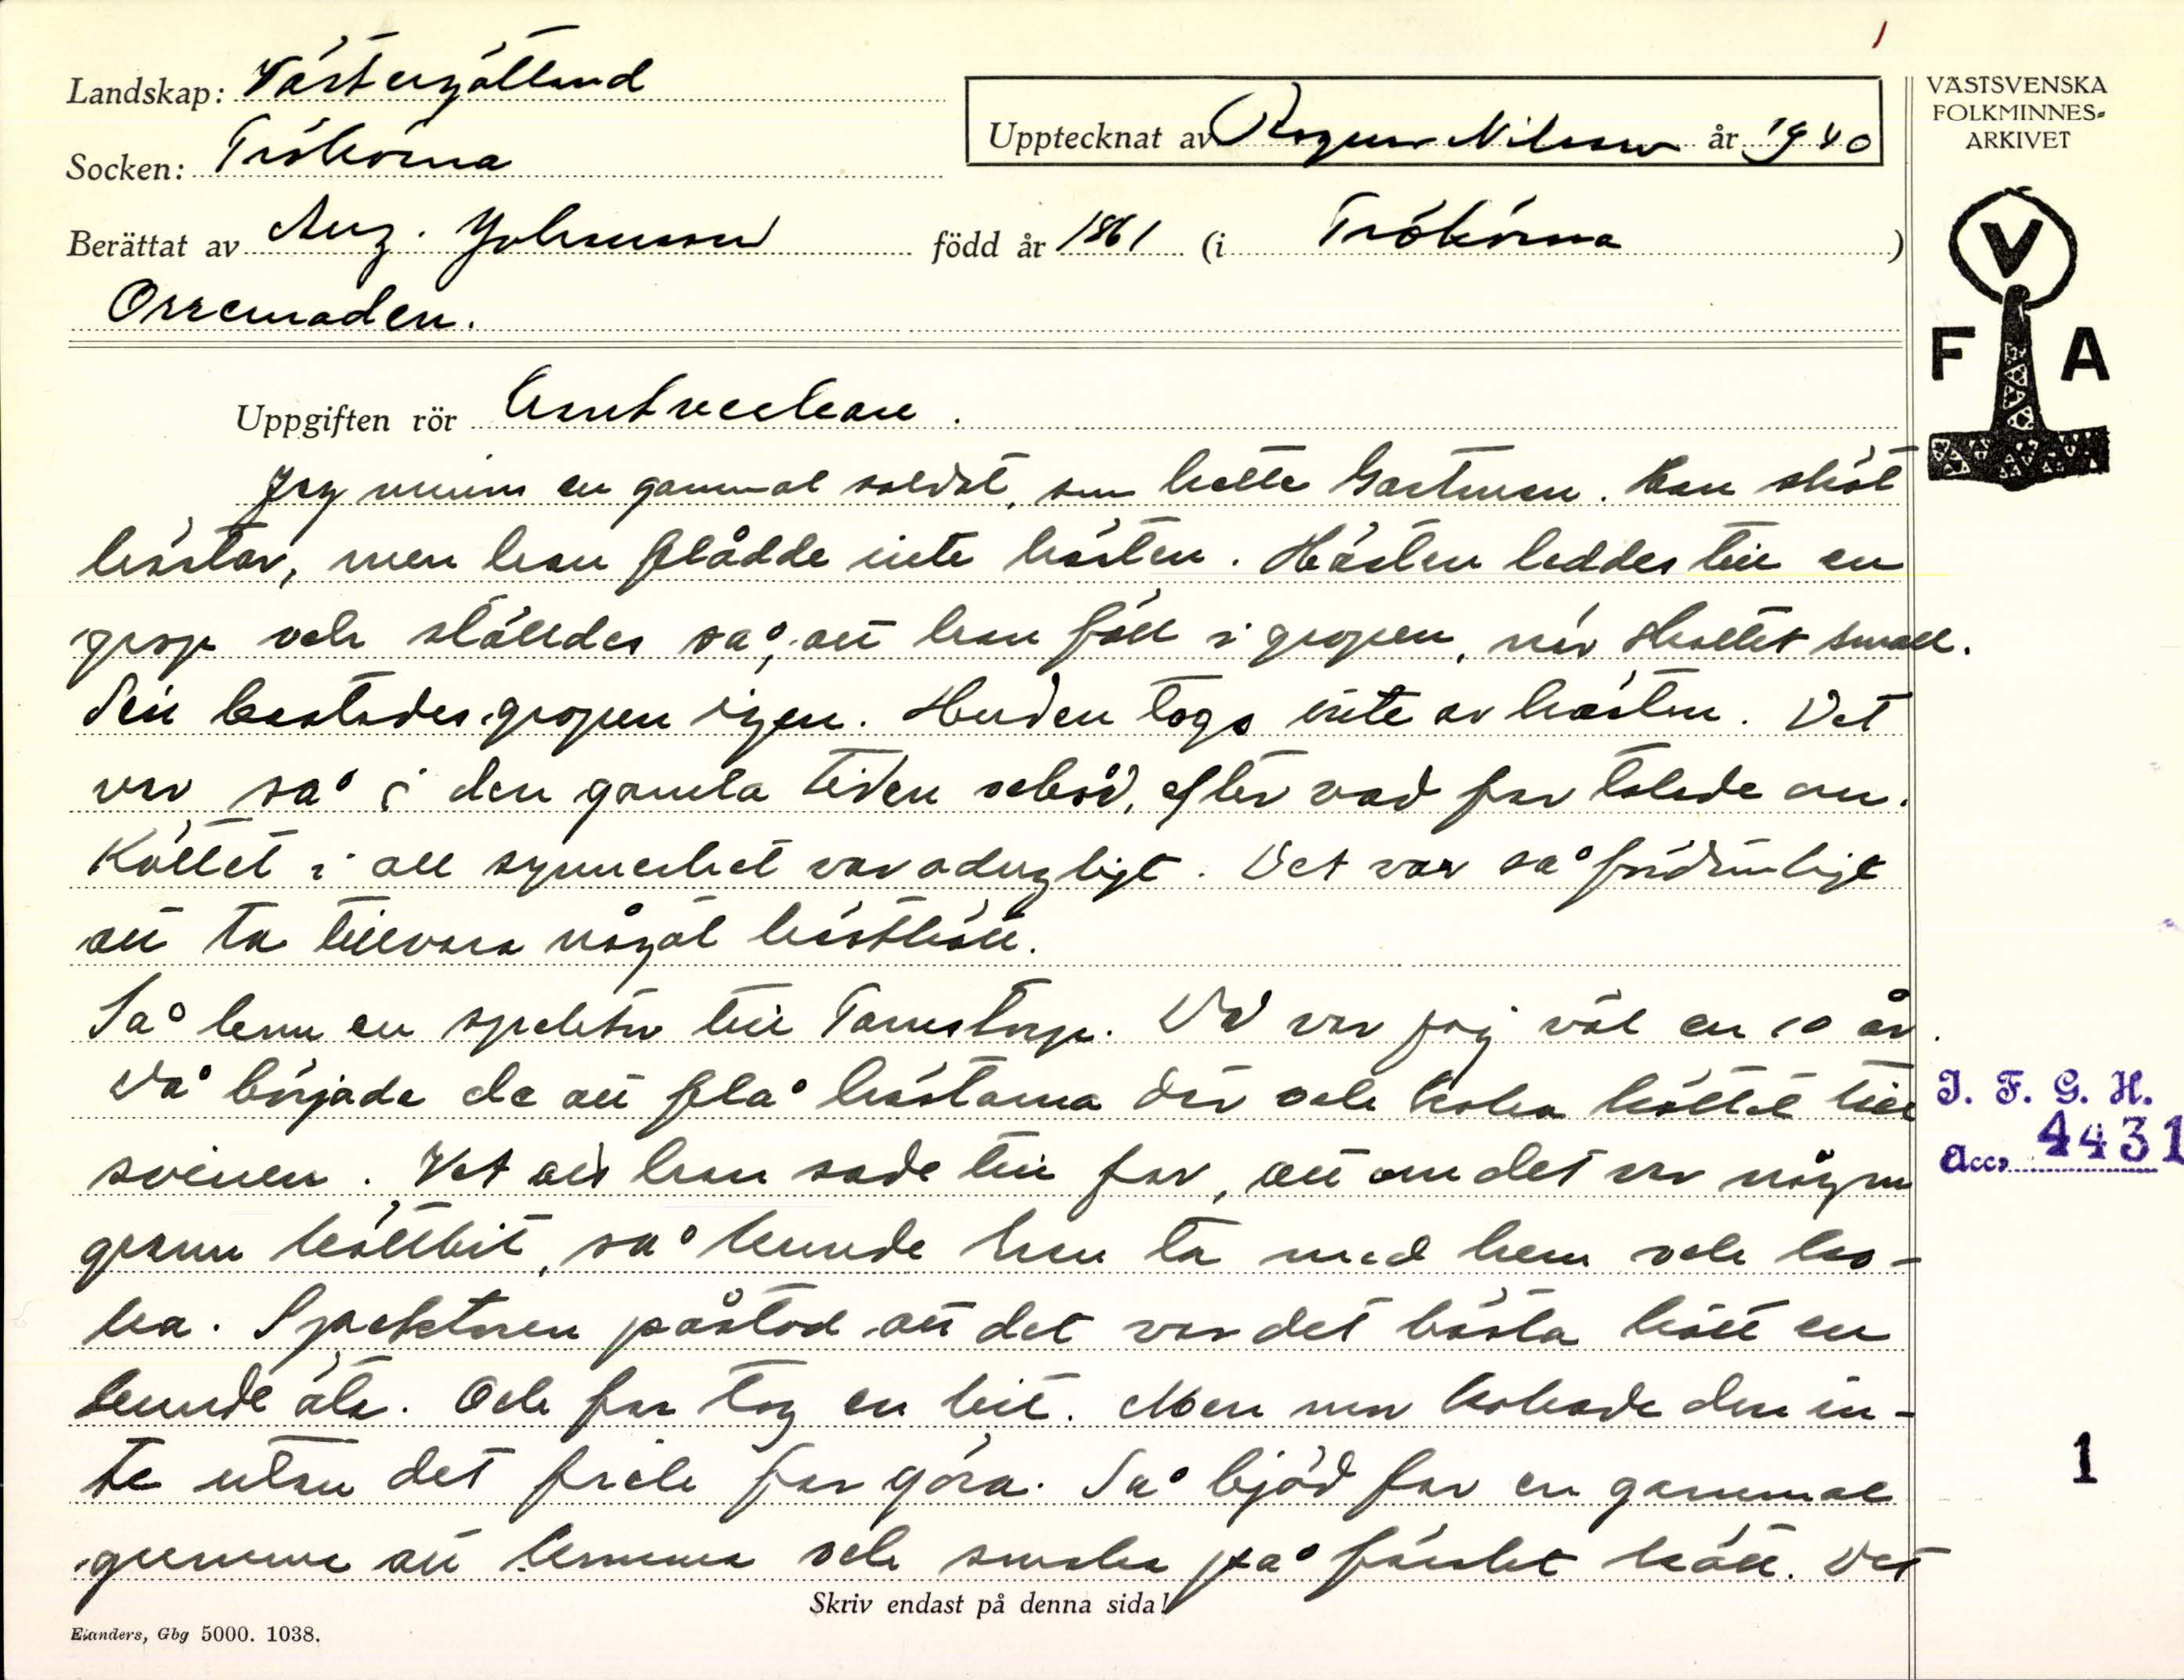 1
Landskap: Västergötland
Upptecknat av Ragnar Nilsson år 1940
Socken: Trökörna
Berättat av Aug. Johansson född år 1861 (i Trökörna)
Orremaden.
VÄSTSVENSKA
FOLKMINNES-
ARKIVET
V
F A
Uppgiften rör
Jag minns en gammal soldat, som hette Gastman. Han sköt
hästar, men han flådde inte hästen. Hästen leddes till en
grop och ställdes så, att han föll i gropen, när skottet small.
Sen kastades gropen igen. Huden togs inte av hästen. Det
var så i den gamla tiden också, efter vad far talade om.
Köttet i all synnerhet var odugligt. Det var så fördömligt
att ta tillvara något hästkött.
Så kom en spektor till Tamstorp. Då var jag väl en 10 år.
Då började de att flå hästarna där och koka köttet till
svinen. Vet att han sade till far, att om det var någon
grann köttbit, så kunde han ta med hem och ko-
ka. Spektoren påstod att det var det bästa kött en
kunde äta. Och far tog en bit. Men mor kokade den in-
te utan det fick far göra. Så bjöd far en gammal
gumma att komma och smaka på färskt kött. Det
Skriv endast på denna sida!
Elanders, Gbg 5000. 1038.
I. F. G. H.
Acc. 4431
1